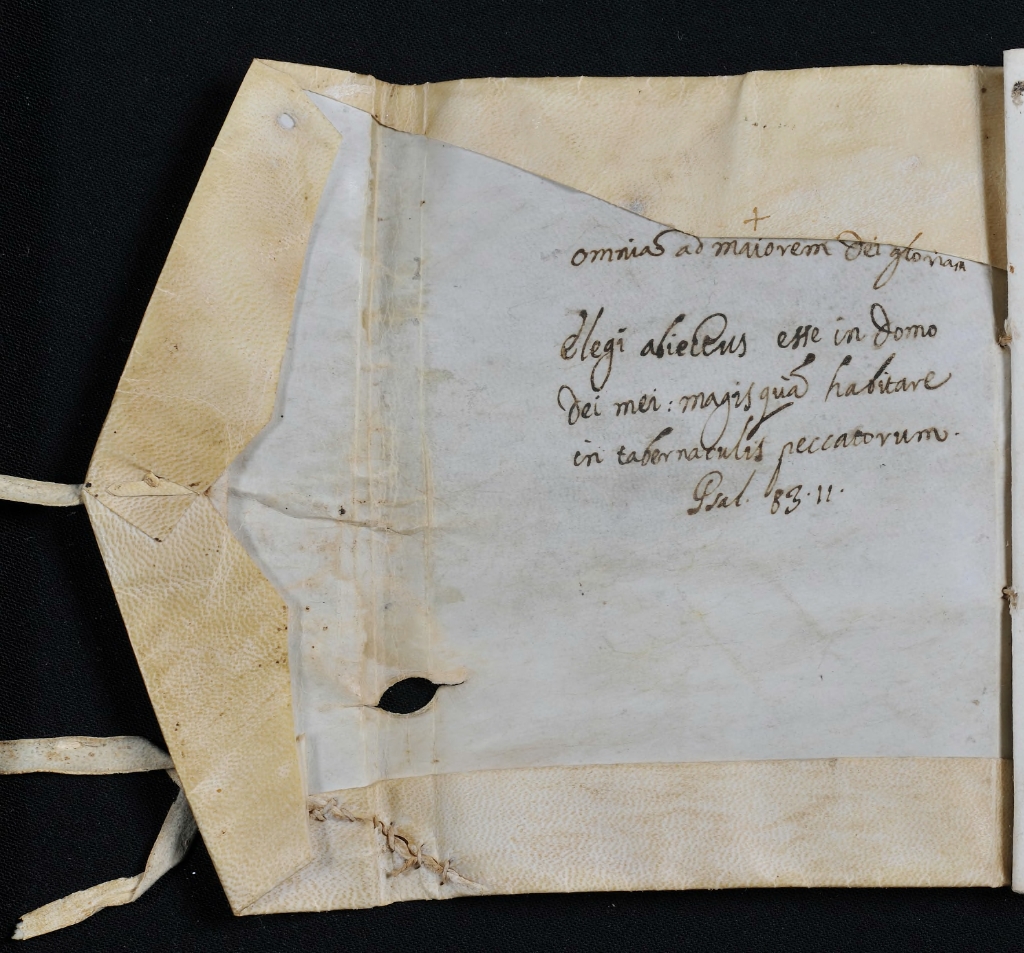 +
omnia ad maiorem Dei gloriam
Elegi abiectus esse in Domo
Dei mei: magis quã habitare
in tabernaculis peccatorum.
Psal. 83.11.